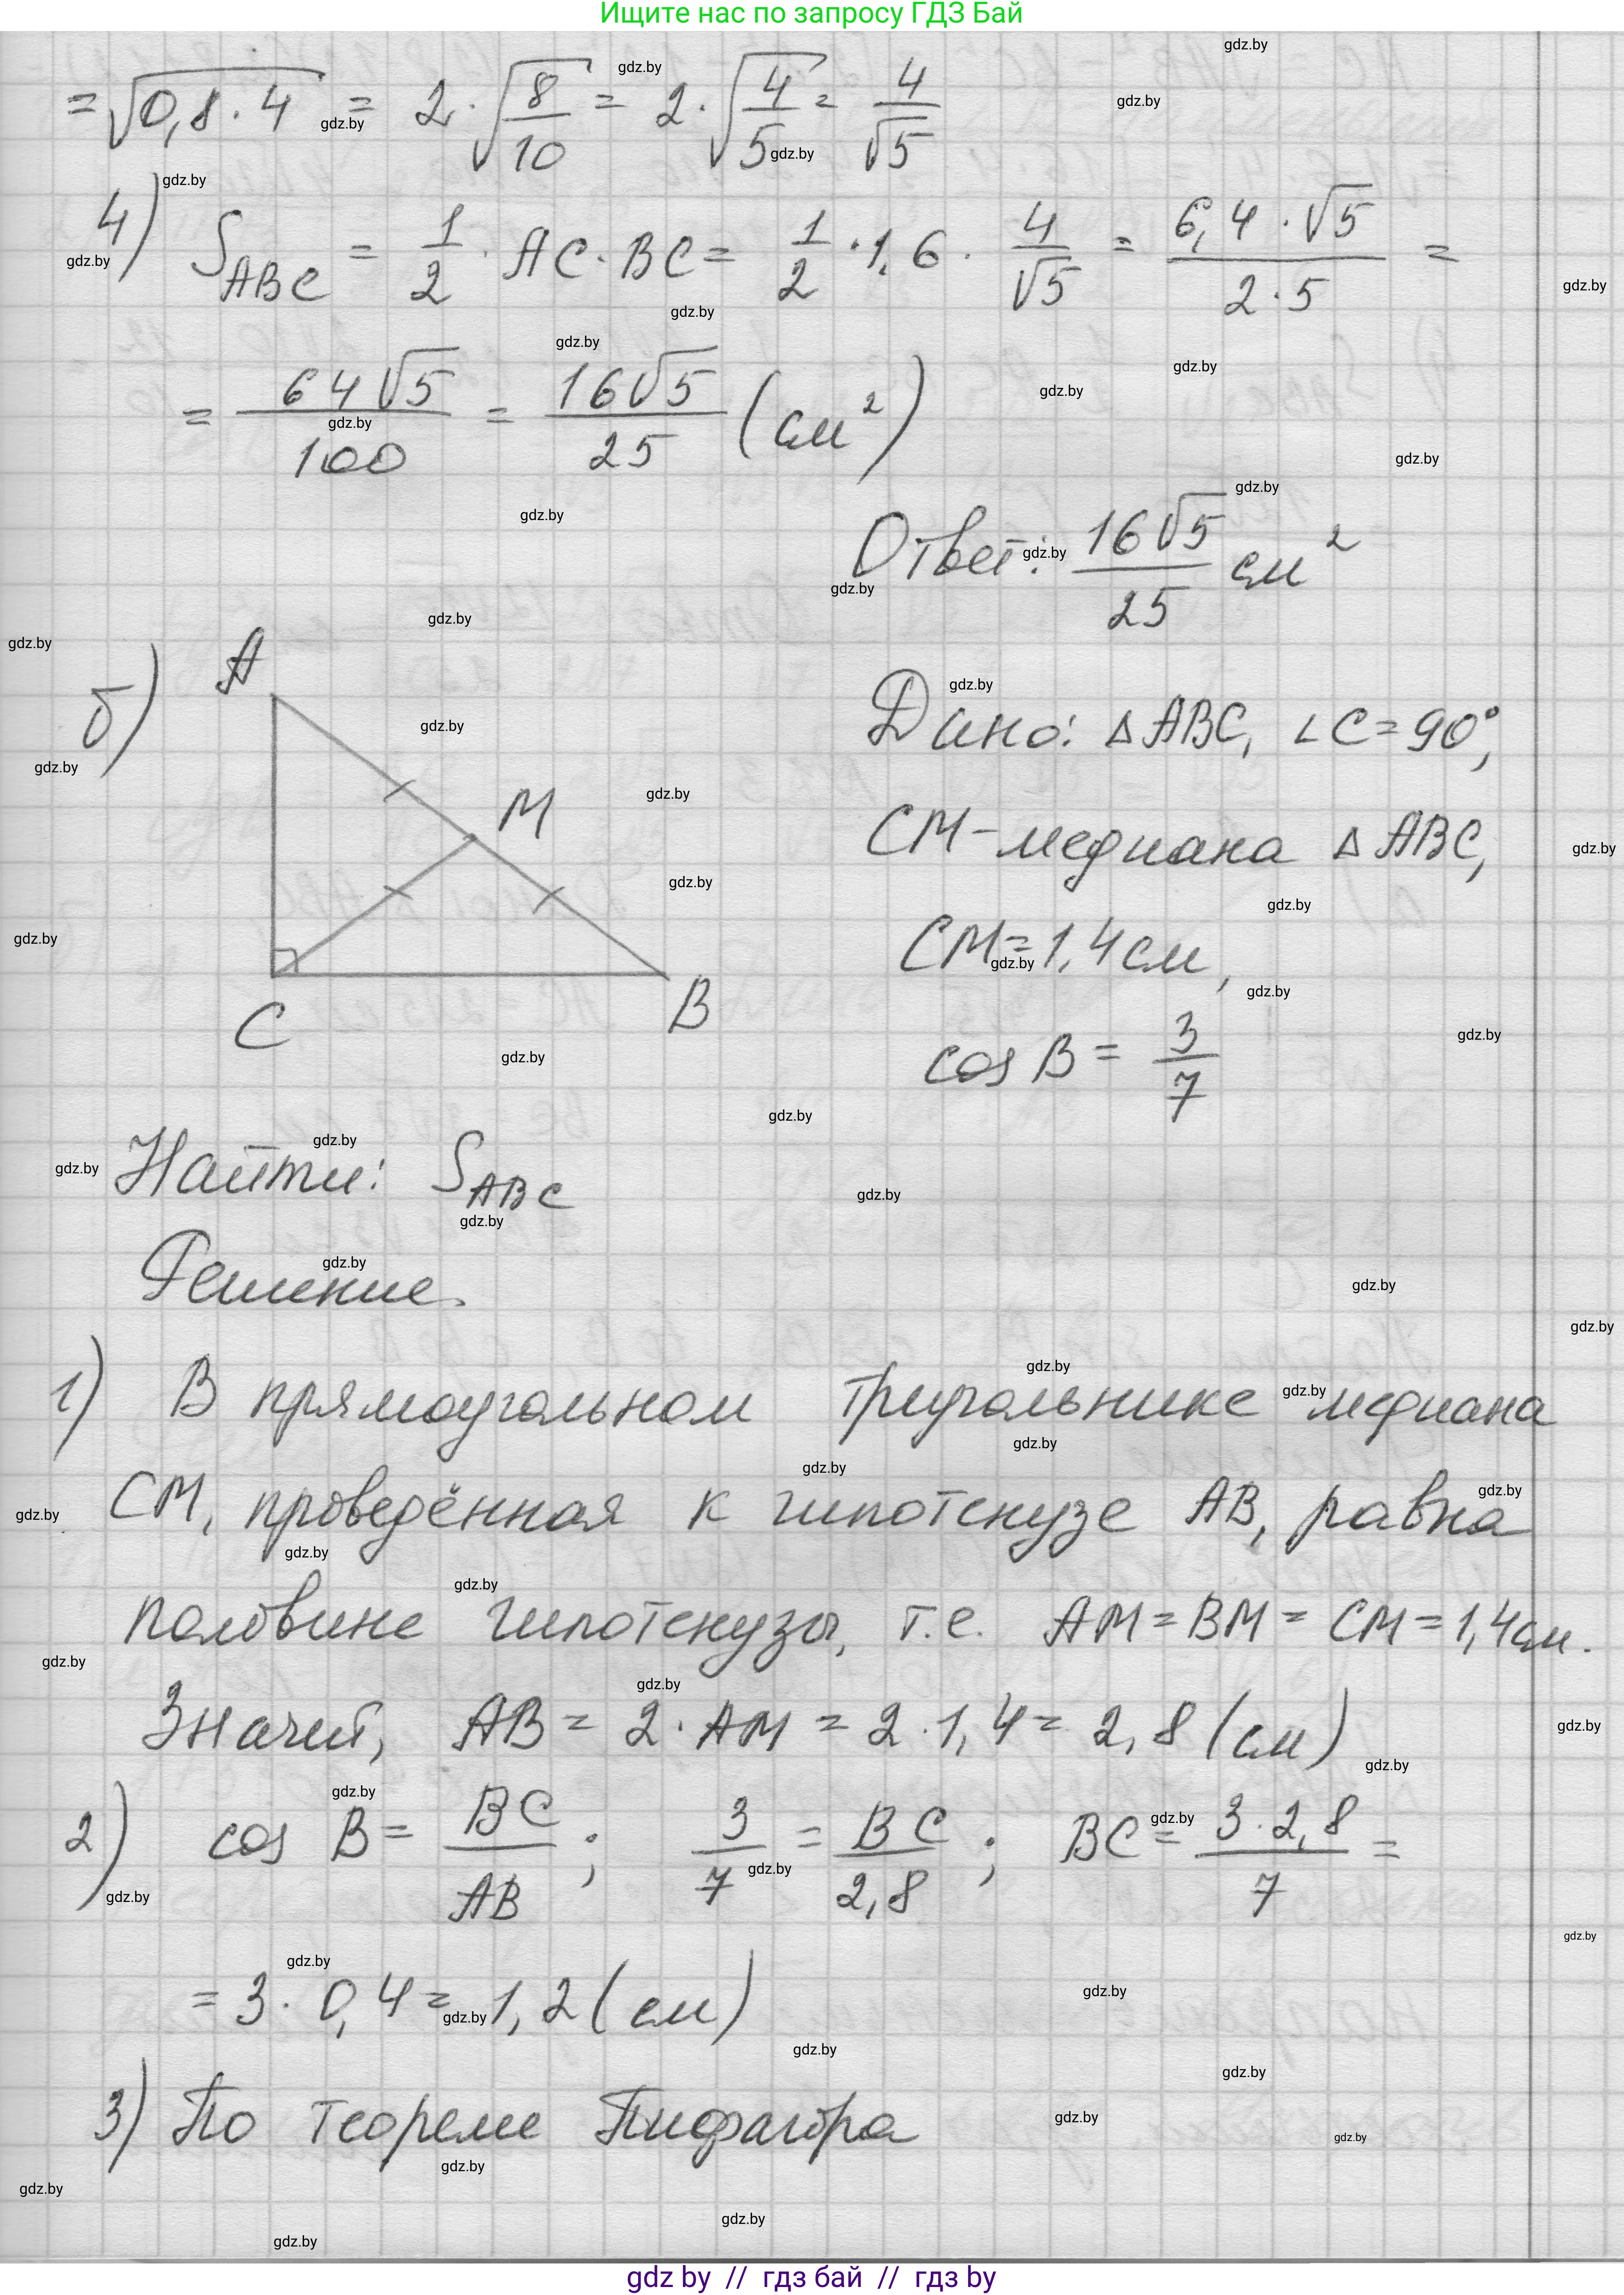 Ищите нас по запросу ГДЗ Бай
= √(0,8 · 4) = 2 · √(8/10) = 2 · √(4/5) = 4/√5
4) S_ABC = 1/2 · AC · BC = 1/2 · 1,6 · 4/√5 = (6,4 · √5)/(2 · 5) =
= 64√5/100 = 16√5/25 (см²)
Ответ: 16√5/25 см²
б)
A
M
C
B
Дано: △ABC, ∠C = 90°,
CM - медиана △ABC,
CM = 1,4 см,
cos B = 3/7
Найти: S_ABC
Решение.
1) В прямоугольном треугольнике медиана
CM, проведённая к гипотенузе AB, равна
половине гипотенузы, т.е. AM = BM = CM = 1,4 см.
Значит, AB = 2 · AM = 2 · 1,4 = 2,8 (см)
2) cos B = BC/AB ; 3/7 = BC/2,8 ; BC = (3 · 2,8)/7 =
= 3 · 0,4 = 1,2 (см)
3) По теореме Пифагора
gdz by // гдз бай // гдз by